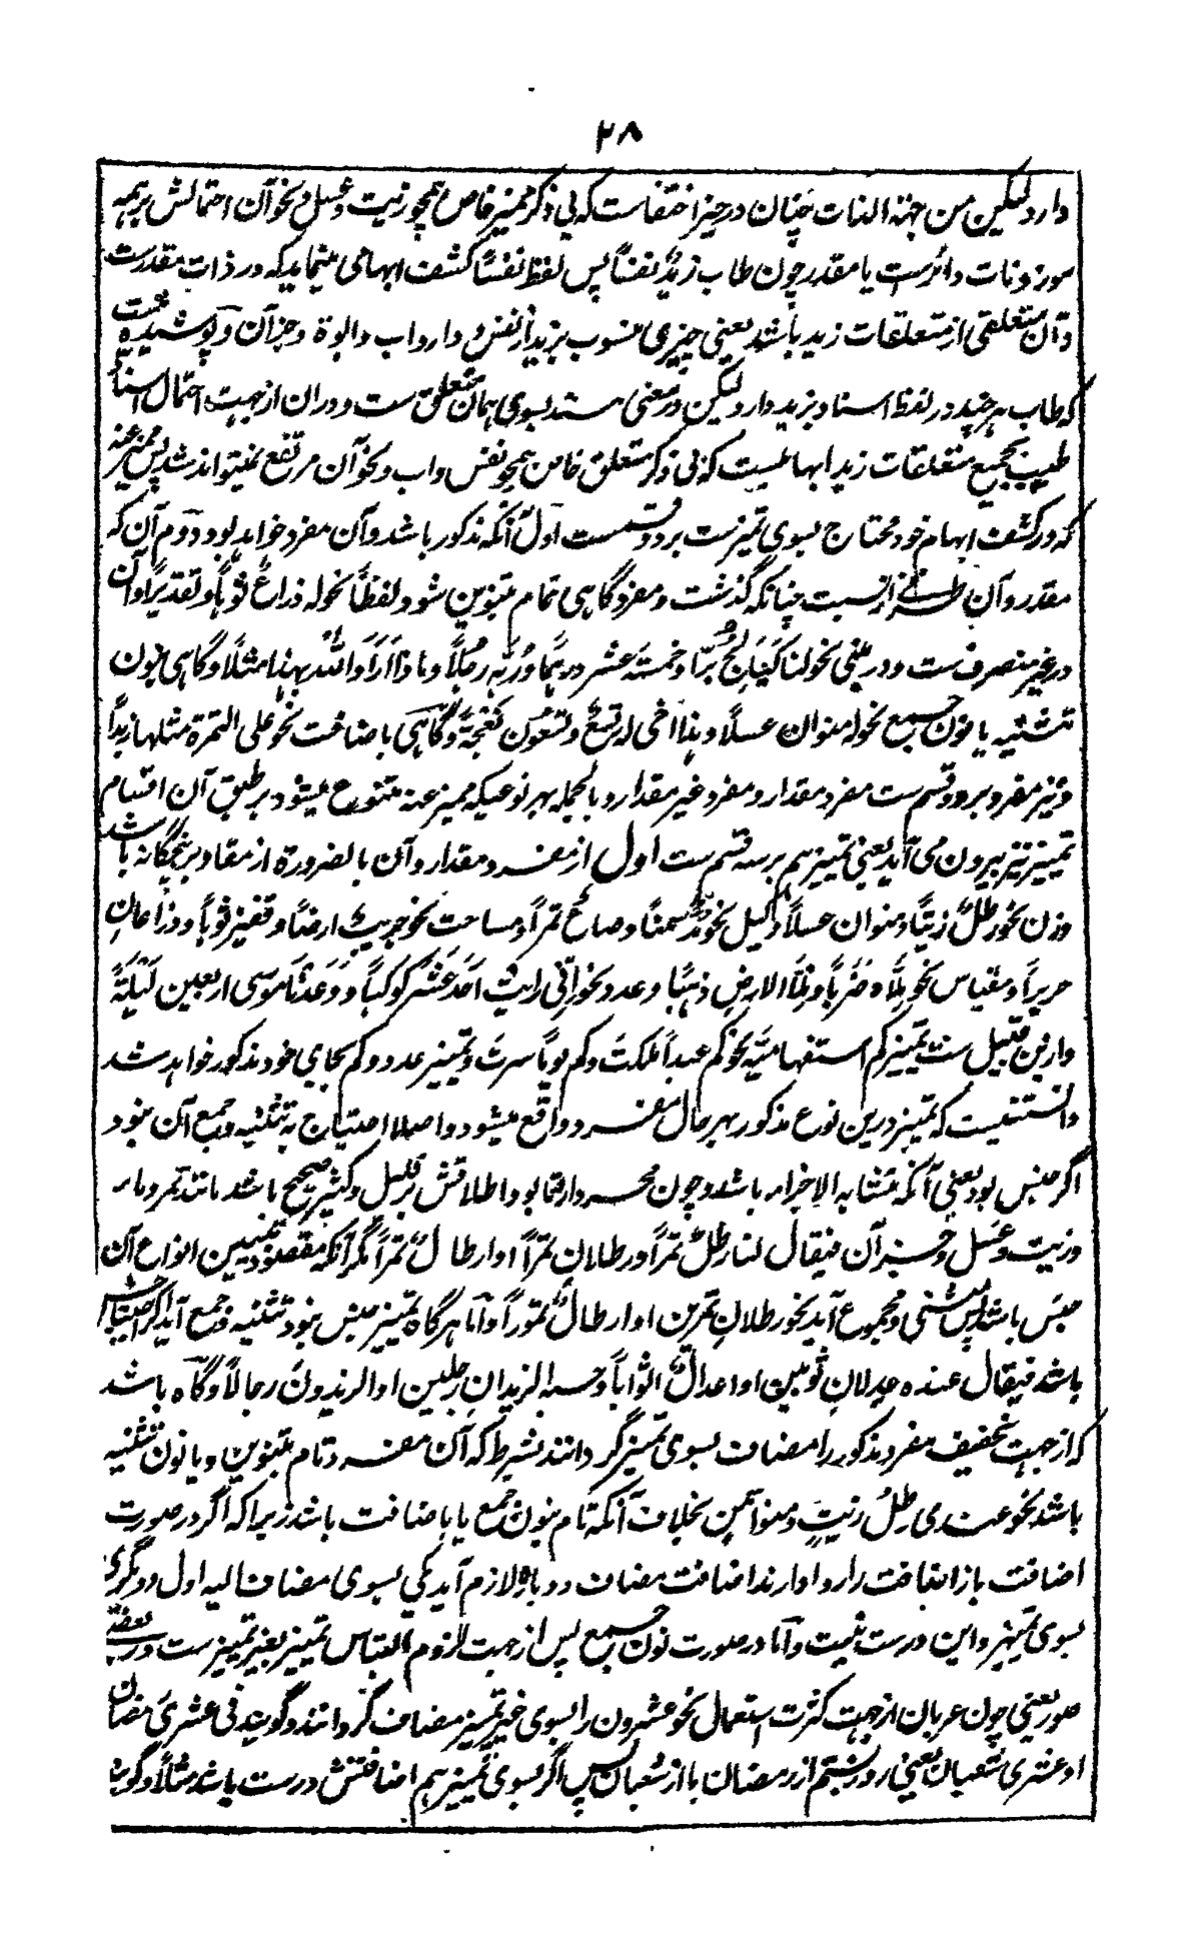 ۲۸
دارد لیکن من جهة الذات چنان در حیز اختفاست که بی ذکر ممیز خاص همچو زیت و عسل و نحو آن احتمالش بر همه
موزونات دائرست یا مقدر چون طاب زیدٌ نفساً پس لفظ نفساً کشف ابهامی مینماید که در ذات مقدرست
و آن متعلقی از متعلقات زید باشد یعنی چیزی منسوب بزید از نفس و دار و اب و ابوة و جز آن و پوشیده نیست
که طاب هر چند در لفظ اسناد بزید دارد لیکن در معنی مسند بسوی همان متعلق ست و در ان از جهت احتمال اسناد
طیب بجمیع متعلقات زید ابهامیست که بی ذکر متعلق خاص همچو نفس و اب و نحو آن مرتفع نمیتواند شد پس ممیز عنه
که در کشف ابهام خود محتاج بسوی تمیزست بر دو قسمست اول آنکه مذکور باشد و آن مفرد خواهد بود و دوم آن که
مقدر و آن از نسبت چنانکه گذشت و مفرد گاهی تمام بتنوین شود لفظاً نحو له ذراعٌ ثوباً و تقدیراً و آن
در غیر منصرف ست و در مبنی نحو لنا کَیَالِجُ بُرّاً و خمسةَ عشر درهماً و رُبَّه رجُلاً و ماذا اَرَادَ اللهُ بهذا مثلاً و گاهی بنون
تثنیه یا نون جمع نحو له منوان عسلاً و هذا اخی له تسعٌ و تسعُون نعجةً و گاهی باضافت نحو علی التمرة مثلها زبداً
و نیز مفرد بر دو قسم ست مفرد مقدار و مفرد غیر مقدار و بالجمله بهر نوعیکه ممیز عنه متنوع میشود بر طبق آن اقسام
تمییز نیز بیرون می آید یعنی تمییز هم بر سه قسم ست اول از مفرد مقدار و آن بالضرورة از مقادیر پنجگانه باشد
وزن نحو رطلٌ زیتاً و منوان عسلاً و کیل نحو مدٌّ سمناً و صاعٌ تمراً و مساحت نحو جریبٌ ارضاً و قفیز ثوباً و ذراعانِ
حریراً و مقیاس نحو مِلْأه ضَرَباً و مِلْأُ الارضِ ذهباً و عدد نحو انّی رایتُ اَحَدَ عَشَرَ کوکباً و وَعَدْنَا مُوسی اربعین لَیْلَةً
و ازین قبیل ست تمییز کم استفهامیّه نحو کم عبداً ملکتَ و کم یوماً سرتَ و تمییز عدد و کم بجای خود مذکور خواهد شد
دانستنیست که تمییز درین نوع مذکور بهر حال مفرد واقع میشود و اصلا احتیاج به تثنیه و جمع آن نبود
اگر جنس بود یعنی آنکه متشابه الاجزاء باشد و چون مجرد از تا بود اطلاقش بر قلیل و کثیر صحیح باشد مانند تمر و ماء
و زیت و عسل و جز آن فیقال لنا رطلٌ تمراً و رطلان تمراً او ارطالٌ تمراً مگر آنکه مقصود تبیین انواع آن
جنس باشد پس مثنی و مجموع آید نحو رطلانِ تمرین او ارطالٌ تموراً و اما هر گاه تمییز جنس نبود تثنیه و جمع آید اگر
باشد فیقال عنده عِدلانِ ثوبین او اعدالٌ اثواباً و حسبه الزیدان رجلین او الزیدونَ رجالاً و گاه باشد
که از جهت تخفیف مفرد مذکور را مضاف بسوی تمییز گردانند بشرطیکه آن مفرد تام بتنوین و یا نون تثنیه
باشد نحو عندی رطلُ زیتٍ و منوا سمنٍ بخلاف آنکه تام بنون جمع یا باضافت باشد زیرا که اگر در صورت
اضافت باز اضافت را روا دارند اضافت مضاف دوباره لازم آید یکی بسوی مضاف الیه اول و دیگری
بسوی تمییز و این درست نیست و اما در صورت نون جمع پس از جهت لزوم التباس تمییز بغیر تمییزست در بعضی
صور یعنی چون عربان از جهت کثرت استعمال نحو عشرون را بسوی غیر تمییز مضاف گردانند و گویند فی عشری رمضان
او عشری شعبان یعنی روز بستم از رمضان یا از شعبان پس اگر بسوی تمییز هم اضافتش درست باشد مثلاً و گویند